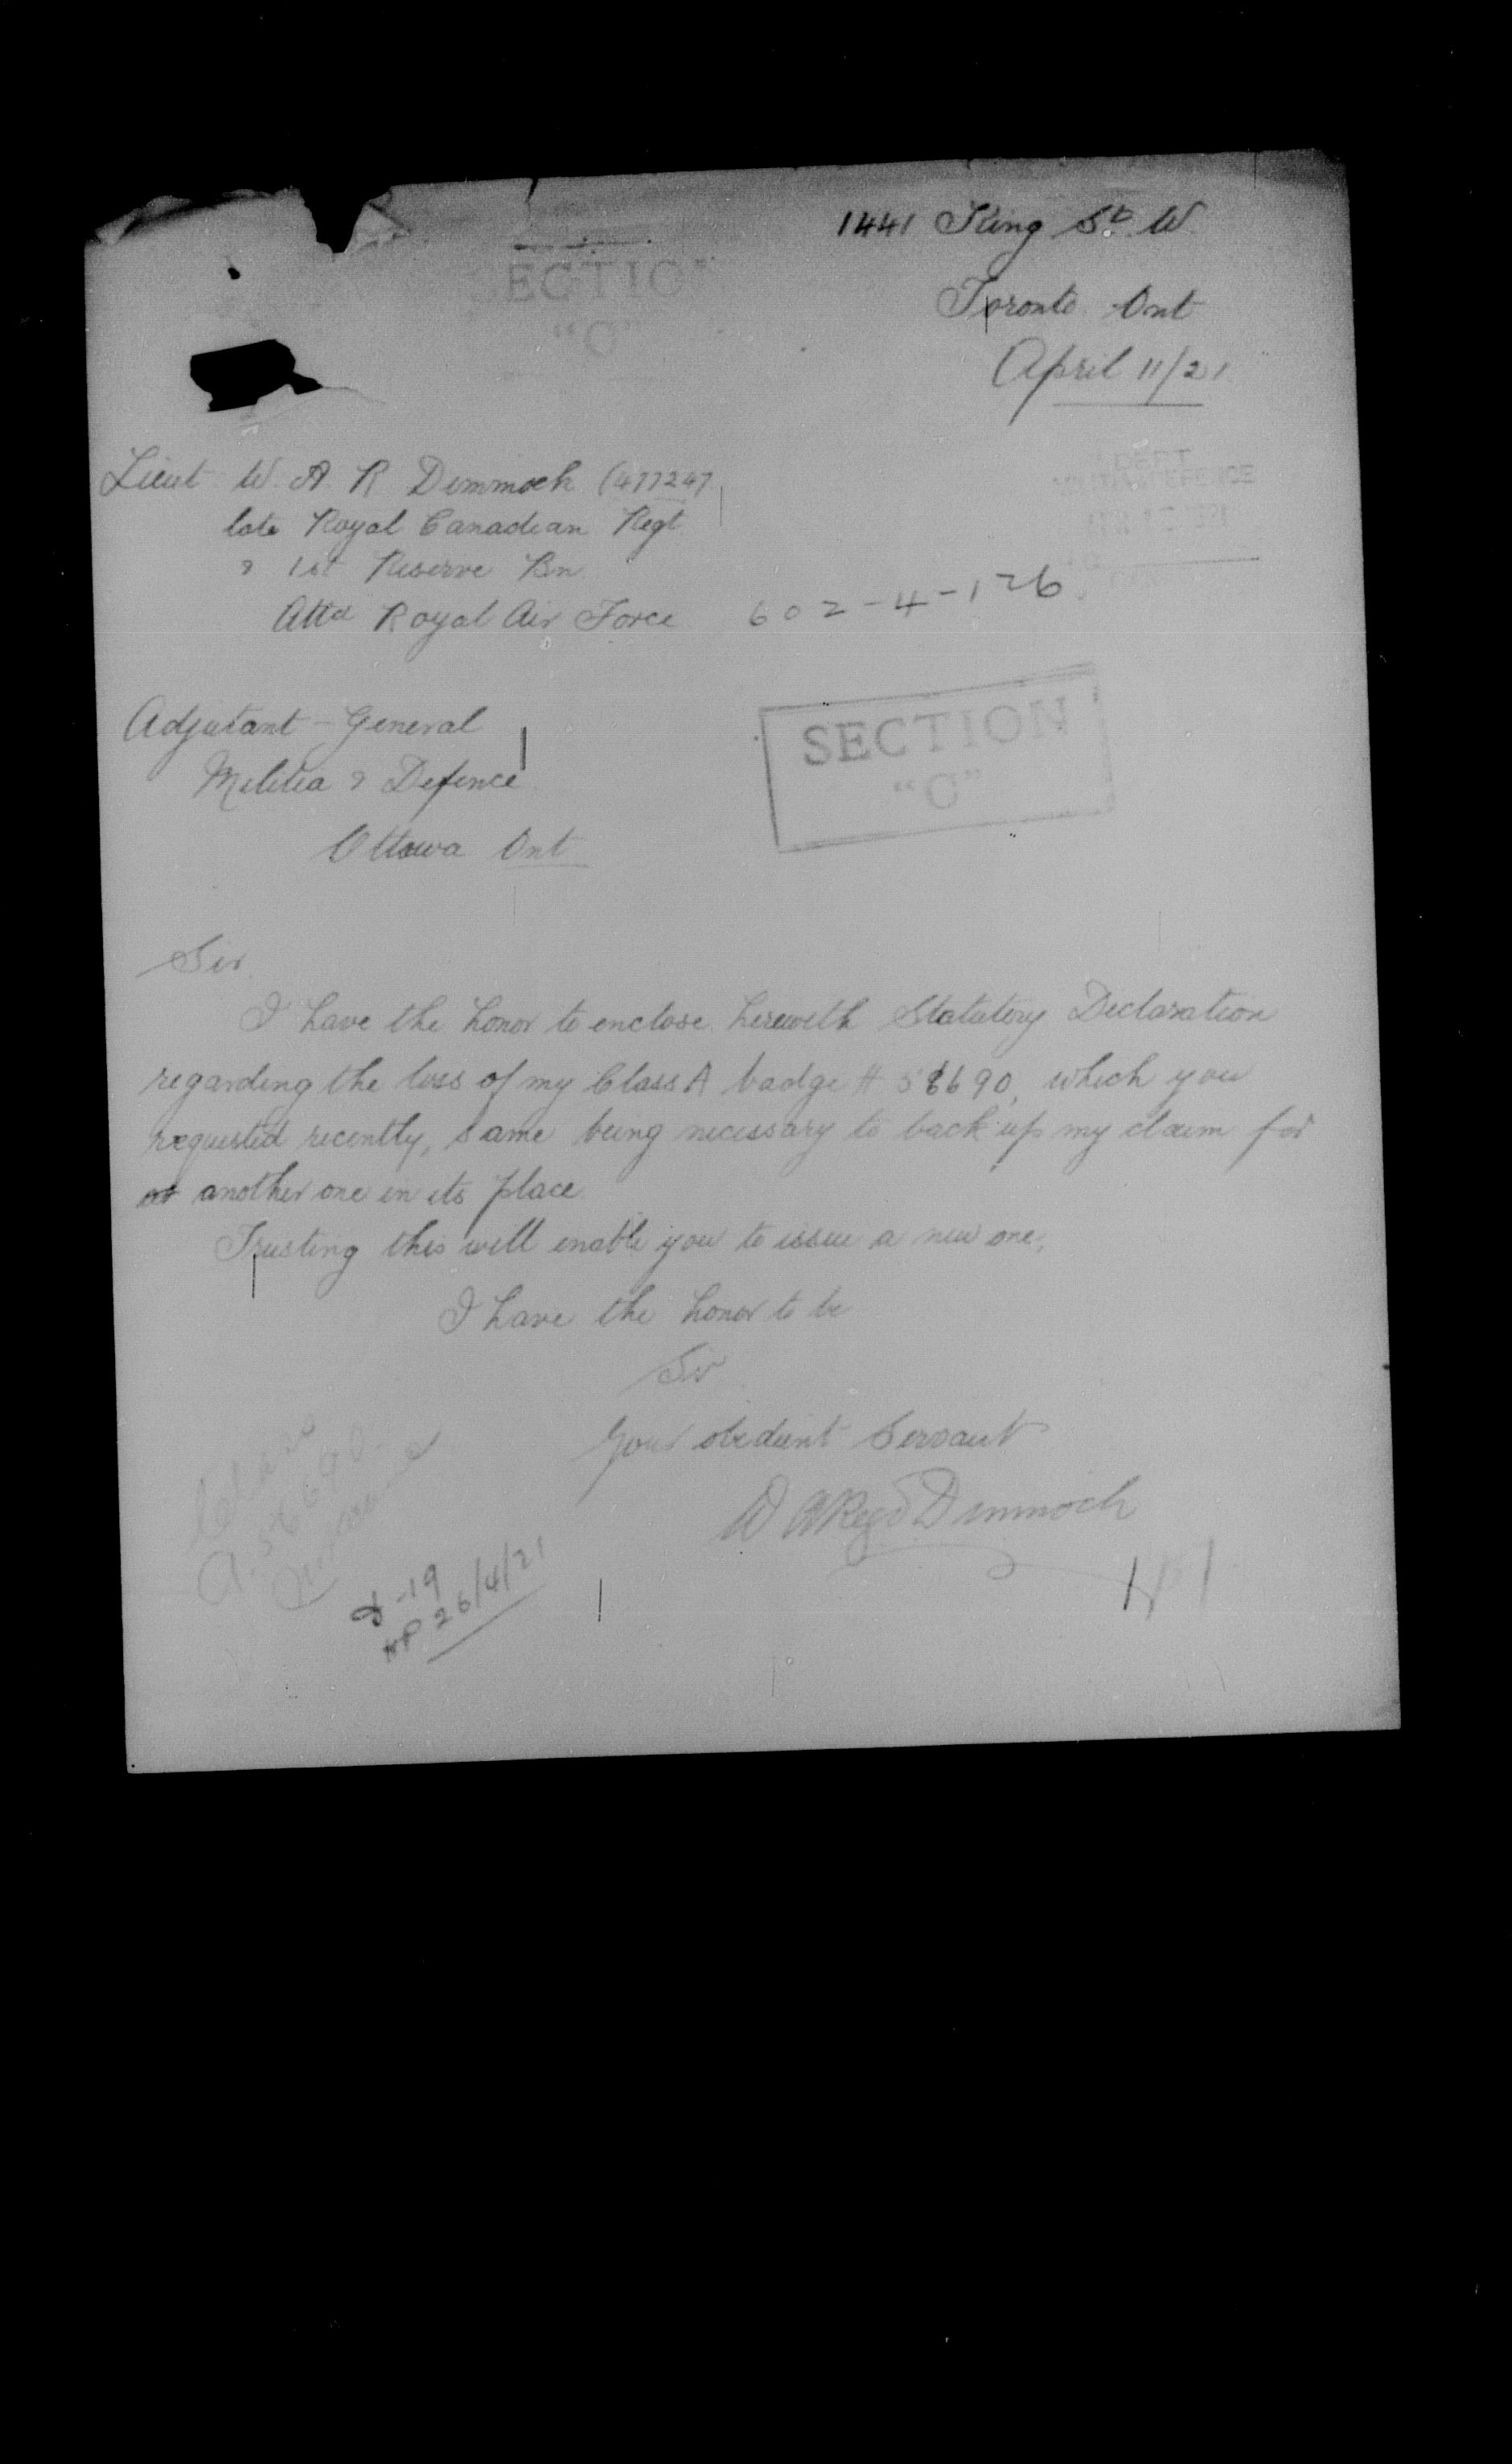 1441 King St. W.
Toronto Ont
April 11/21
SECTIO
"C"
Lieut W. A. R Dimmock (477247
late Royal Canadian Regt
& 1st Reserve Bn
Attd Royal Air Force
602-4-126
Adjutant-General
Militia & Defence
Ottawa Ont
SECTION
"C"
Sir
I have the honor to enclose herewith Statutory Declaration
regarding the loss of my Class A badge # 58690, which you
requested recently, same being necessary to back up my claim for
another one in its place
Trusting this will enable you to issue a new one,
I have the honor to be
Sir
Your obedient Servant
W A Regd Dimmock
Class
A. 58690
-19
26/4/21